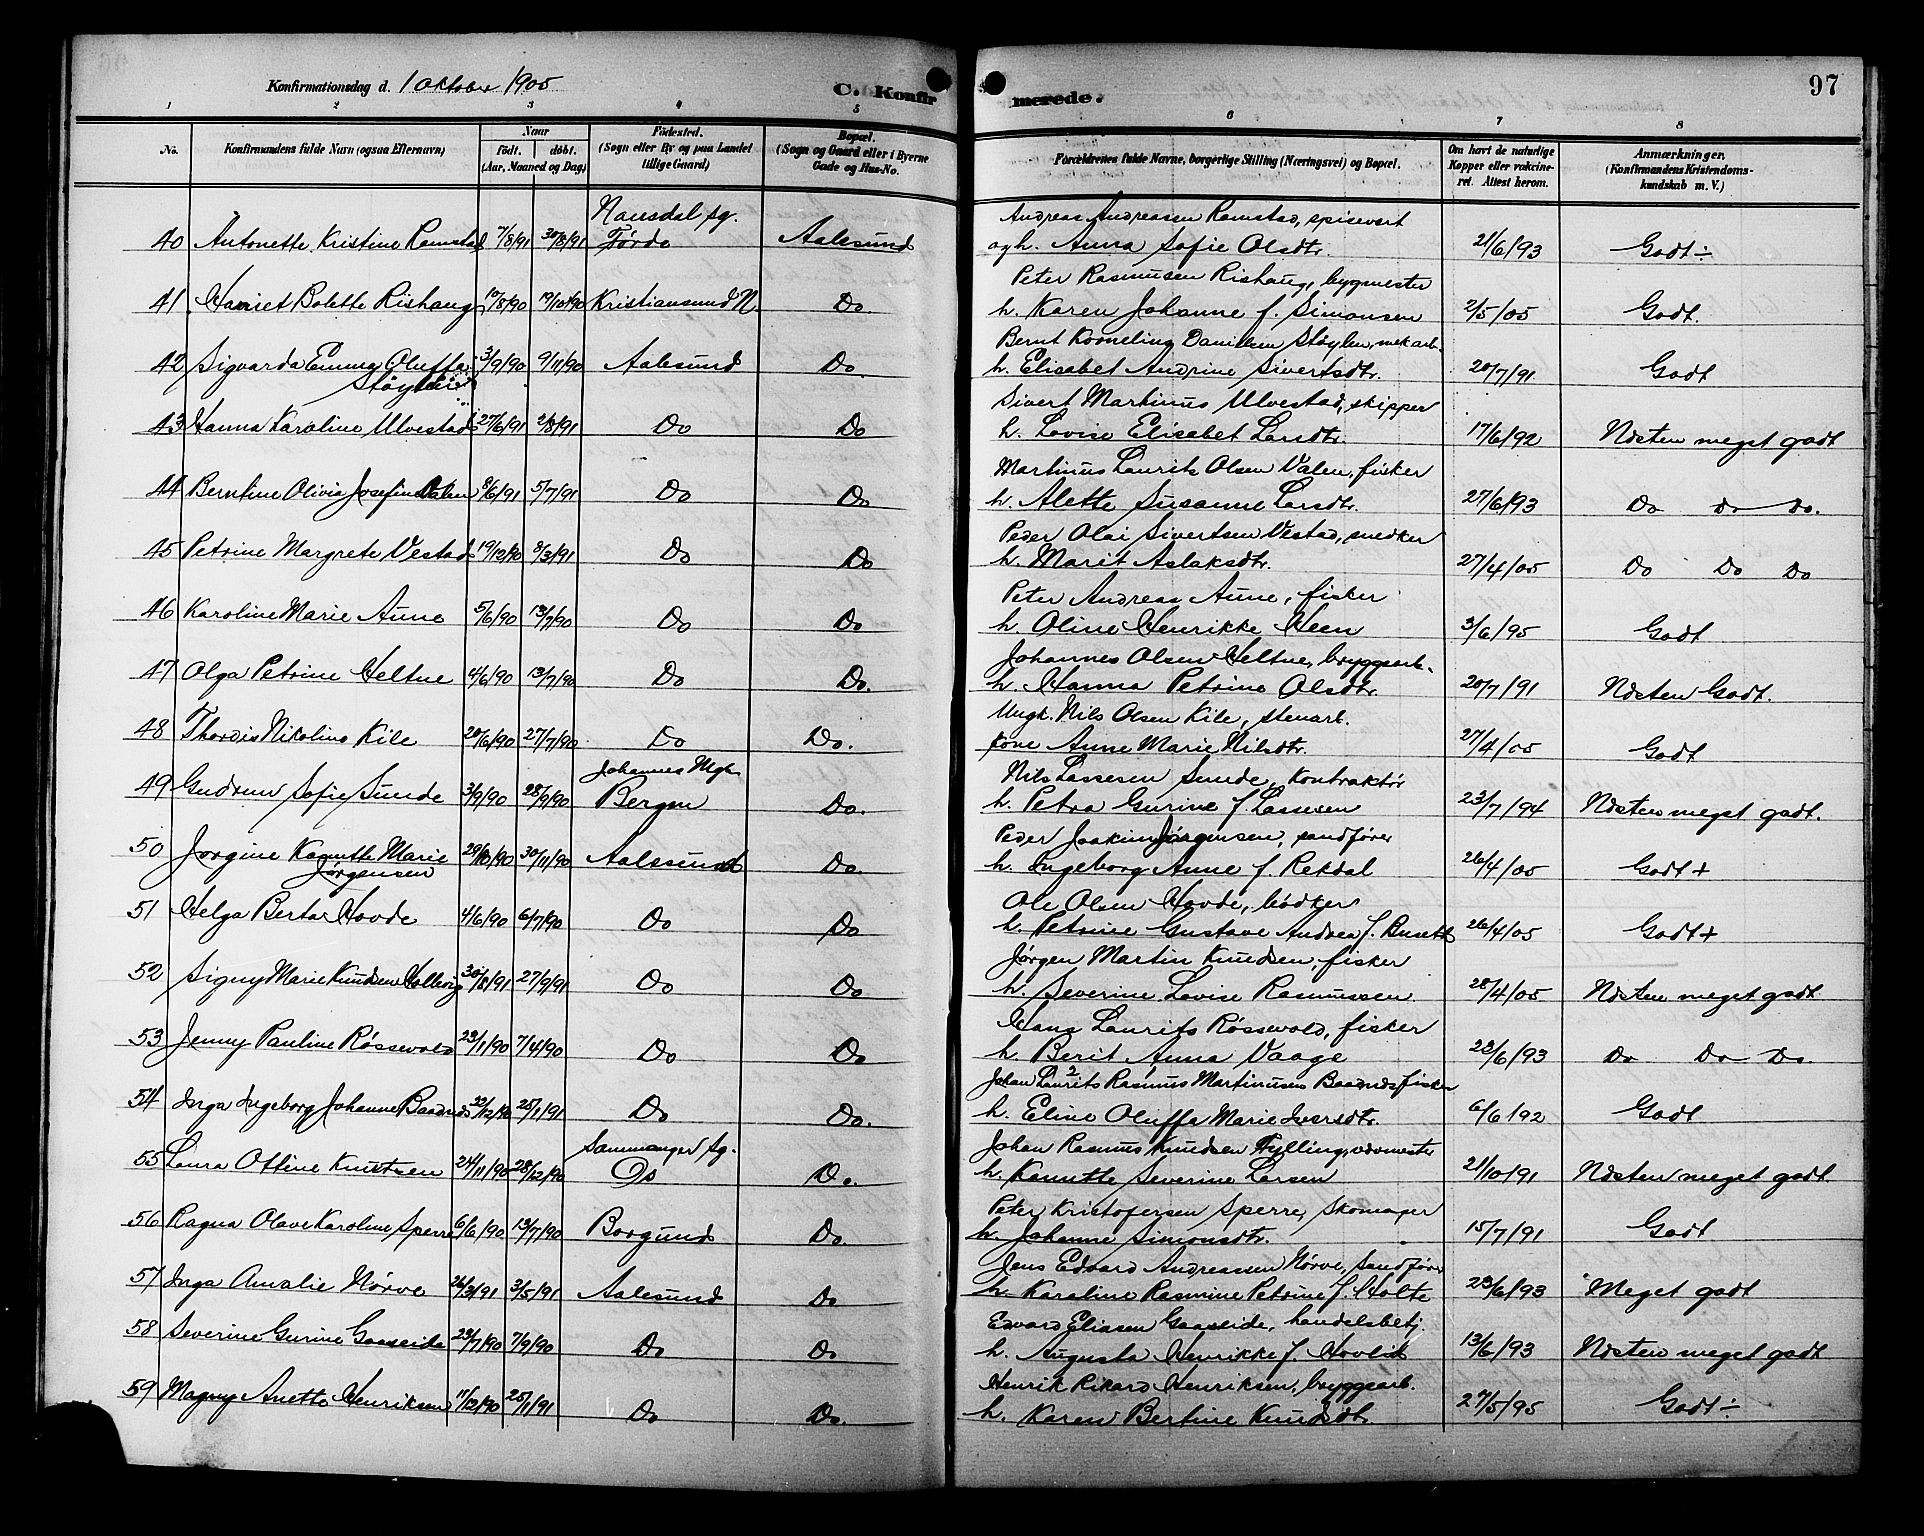 97
Konfirmationsdag d. 1 Oktober 1905
C. Konfirmerede.
1 2 3 4 5 6 7 8
No.
Konfirmandens fulde Navn (ogsaa Efternavn)
Naar
født. døbt.
(Aar, Maaned og Dag)
Fødested.
(Sogn eller By og paa Landet tillige Gaard)
Bopæl.
(Sogn og Gaard eller i Byerne Gade og Hus-No.
Forældrenes fulde Navne, borgerlige Stilling (Næringsvei) og Bopæl.
Om havt de naturlige Kopper eller vakcineret. Attest herom.
Anmærkninger.
(Konfirmandens Kristendomskundskab m. V.)
Naustdal sg. Andreas Andreasen Ramstad, spisevert
40 Antonette Kristine Ramstad 7/8/91 30/8/91 Førde Aalesund og h. Anna Sofie Olsdtr. 21/6/93 Godt ÷
Peter Rasmusen Rishaug, bygmester
41 Harriet Bolette Rishaug 10/8/90 19/10/90 Kristiansund N. Do. h. Karen Johanne f. Simonsen 2/5/05 Godt.
Bernt Korneling Danielsen Støylen, mek arb.
42 Sigvarda Emma Oluffa 3/9/90 9/11/90 Aalesund Do. h. Elisabet Andrine Sivertsdtr. 20/7/91 Godt
Støylen
Sivert Martinus Ulvestad, skipper
43 Hanna Karoline Ulvestad 27/6/91 2/8/91 Do Do h. Lovise Elisabet Larsdtr. 17/6/92 Næsten meget godt
Martinus Laurits Olsen Valen, fisker
44 Berntine Olivia Josefine Valen 8/6/91 5/7/91 Do Do h. Alette Susanne Larsdtr. 27/6/93 Do Do Do.
Peder Olai Sivertsen Vestad, snedker
45 Petrine Margrete Vestad 19/12/90 8/3/91 Do Do h. Marit Aslaksdtr. 27/4/05 Do Do Do
Peter Andreas Aune, fisker
46 Karoline Marie Aune 5/6/90 13/7/90 Do Do h. Oline Henrikke Heen 3/6/95 Godt
Johannes Olsen Heltne, bryggearb.
47 Olga Petrine Heltne 4/6/90 13/7/90 Do Do. h. Hanna Petrine Olsdtr. 20/7/91 Næsten Godt.
Ungk. Nils Olsen Kile, stenarb.
48 Thordis Nikoline Kile 20/6/90 27/7/90 Do Do. kone Anne Marie Nilsdtr. 27/4/05 Godt
Johannes Mgh Nils Lassesen Sunde, Kontraktør
49 Gudrun Sofie Sunde 3/9/90 28/9/90 Bergen Do. h. Petra Gurine f. Lassesen 23/7/94 Næsten meget godt.
Peder Joakim Jørgensen, sandfører
50 Jørgine Kanutte Marie 29/10/90 30/11/90 Aalesund Do. h. Ingeborg Anne f. Rekdal 26/4/05 Godt +
Jørgensen
Ole Olsen Hovde, bødker
51 Helga Berta Hovde 4/6/90 6/7/90 Do Do h. Petrine Gustave Andrea f. Busett 26/4/05 Godt +
Jørgen Martin Knudsen, fisker
52 Signy Marie Knudsen Hollevig 30/8/91 27/9/91 Do Do h. Severine Lovise Rasmussen 28/4/05 Næsten meget godt
Hans Laurits Røssevold, fisker
53 Jenny Pauline Røssevold 23/1/90 7/4/90 Do Do h. Berit Anna Vaage 23/6/93 Do Do Do.
Johan Laurits Rasmus Martinusen Baadnes fisker
54 Inga Ingeborg Johanne Baadnes 22/12/90 25/1/91 Do Do. h. Eline Oluffa Marie Iversdtr. 6/6/92 Godt
Sammanger sg. Johan Rasmus Knudsen Hylling,
55 Laura Ottine Knutsen 24/11/90 28/12/90 Os Do. h. Kanutte Severine Larsen 21/10/91 Næsten meget godt
Peter Kristofersen Sperre, Skomager
56 Ragna Olave Karoline Sperre 6/6/90 13/7/90 Borgund Do. h. Johanne Simonsdtr. 15/7/91 Godt
Jens Edvard Andreassen Nørve, Sandfører
57 Inga Amalie Nørve 26/3/91 3/5/91 Aalesund Do h. Karoline Rasmine Petrine f. Holte 23/6/93 Meget godt
Edvard Eliasen Gaaseide, handelsbetj.
58 Severine Gurine Gaaseide 23/7/90 7/9/90 Do Do h. Augusta Henrikke f. Hovlid 13/6/93 Næsten meget godt
Henrik Rikard Henriksen, bryggearb.
59 Magny Anette Henriksen 11/12/90 25/1/91 Do Do. h. Karen Bertine Knudsdtr. 27/5/95 Godt ÷